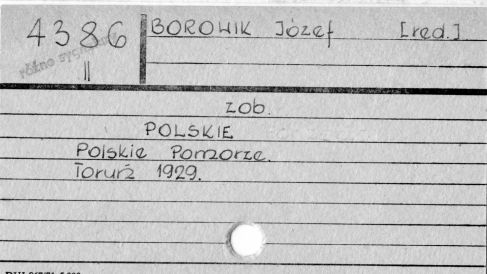 4386 BOROWIK Józef [red.]
różne sygn.
II
zob.
POLSKIE
Polskie Pomorze.
Toruń 1929.